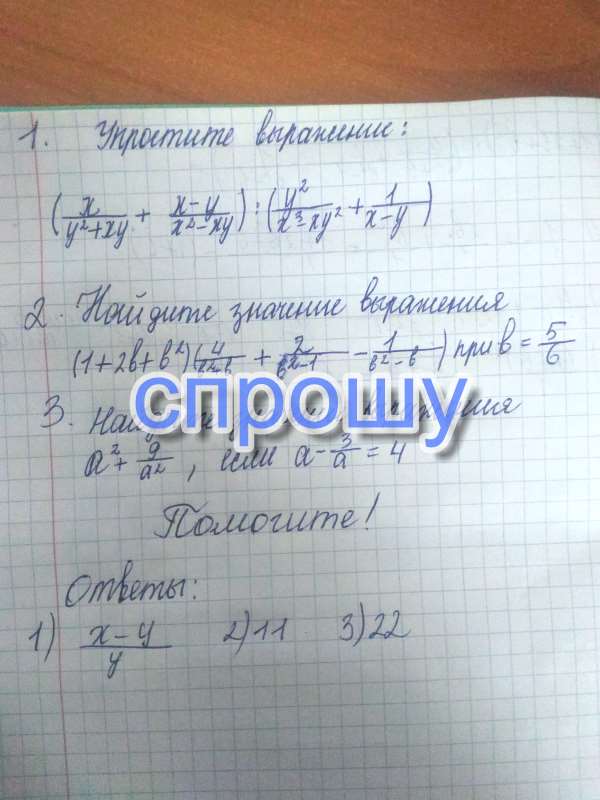 1. Упростите выражение:
(x/(y²+xy) + (x-y)/(x²-xy)) : (y²/(x³-xy²) + 1/(x-y))
2. Найдите значение выражения
(1+2b+b²)( + 2/(b²-1) - 1/(b²-b)) при b = 5/6
спрошу
3.
a² + 9/a², если a - 3/a = 4
Помогите!
Ответы:
1) (x-y)/y 2) 11 3) 22